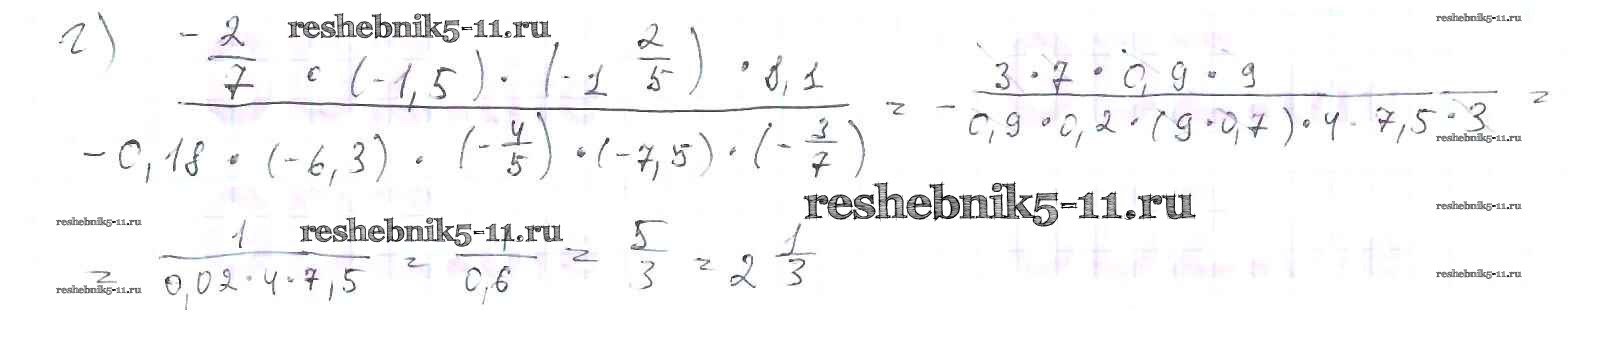 г) (-2/7 · (-1,5) · (-1 2/5) · 8,1) / (-0,18 · (-6,3) · (-4/5) · (-7,5) · (-3/7)) = - (3 · 7 · 0,9 · 9) / (0,9 · 0,2 · (9 · 0,7) · 4 · 7,5 · 3) =
= 1 / (0,02 · 4 · 7,5) = 1 / 0,6 = 5/3 = 2 1/3
reshebnik5-11.ru
reshebnik5-11.ru
reshebnik5-11.ru
reshebnik5-11.ru
reshebnik5-11.ru
reshebnik5-11.ru
reshebnik5-11.ru
reshebnik5-11.ru
reshebnik5-11.ru